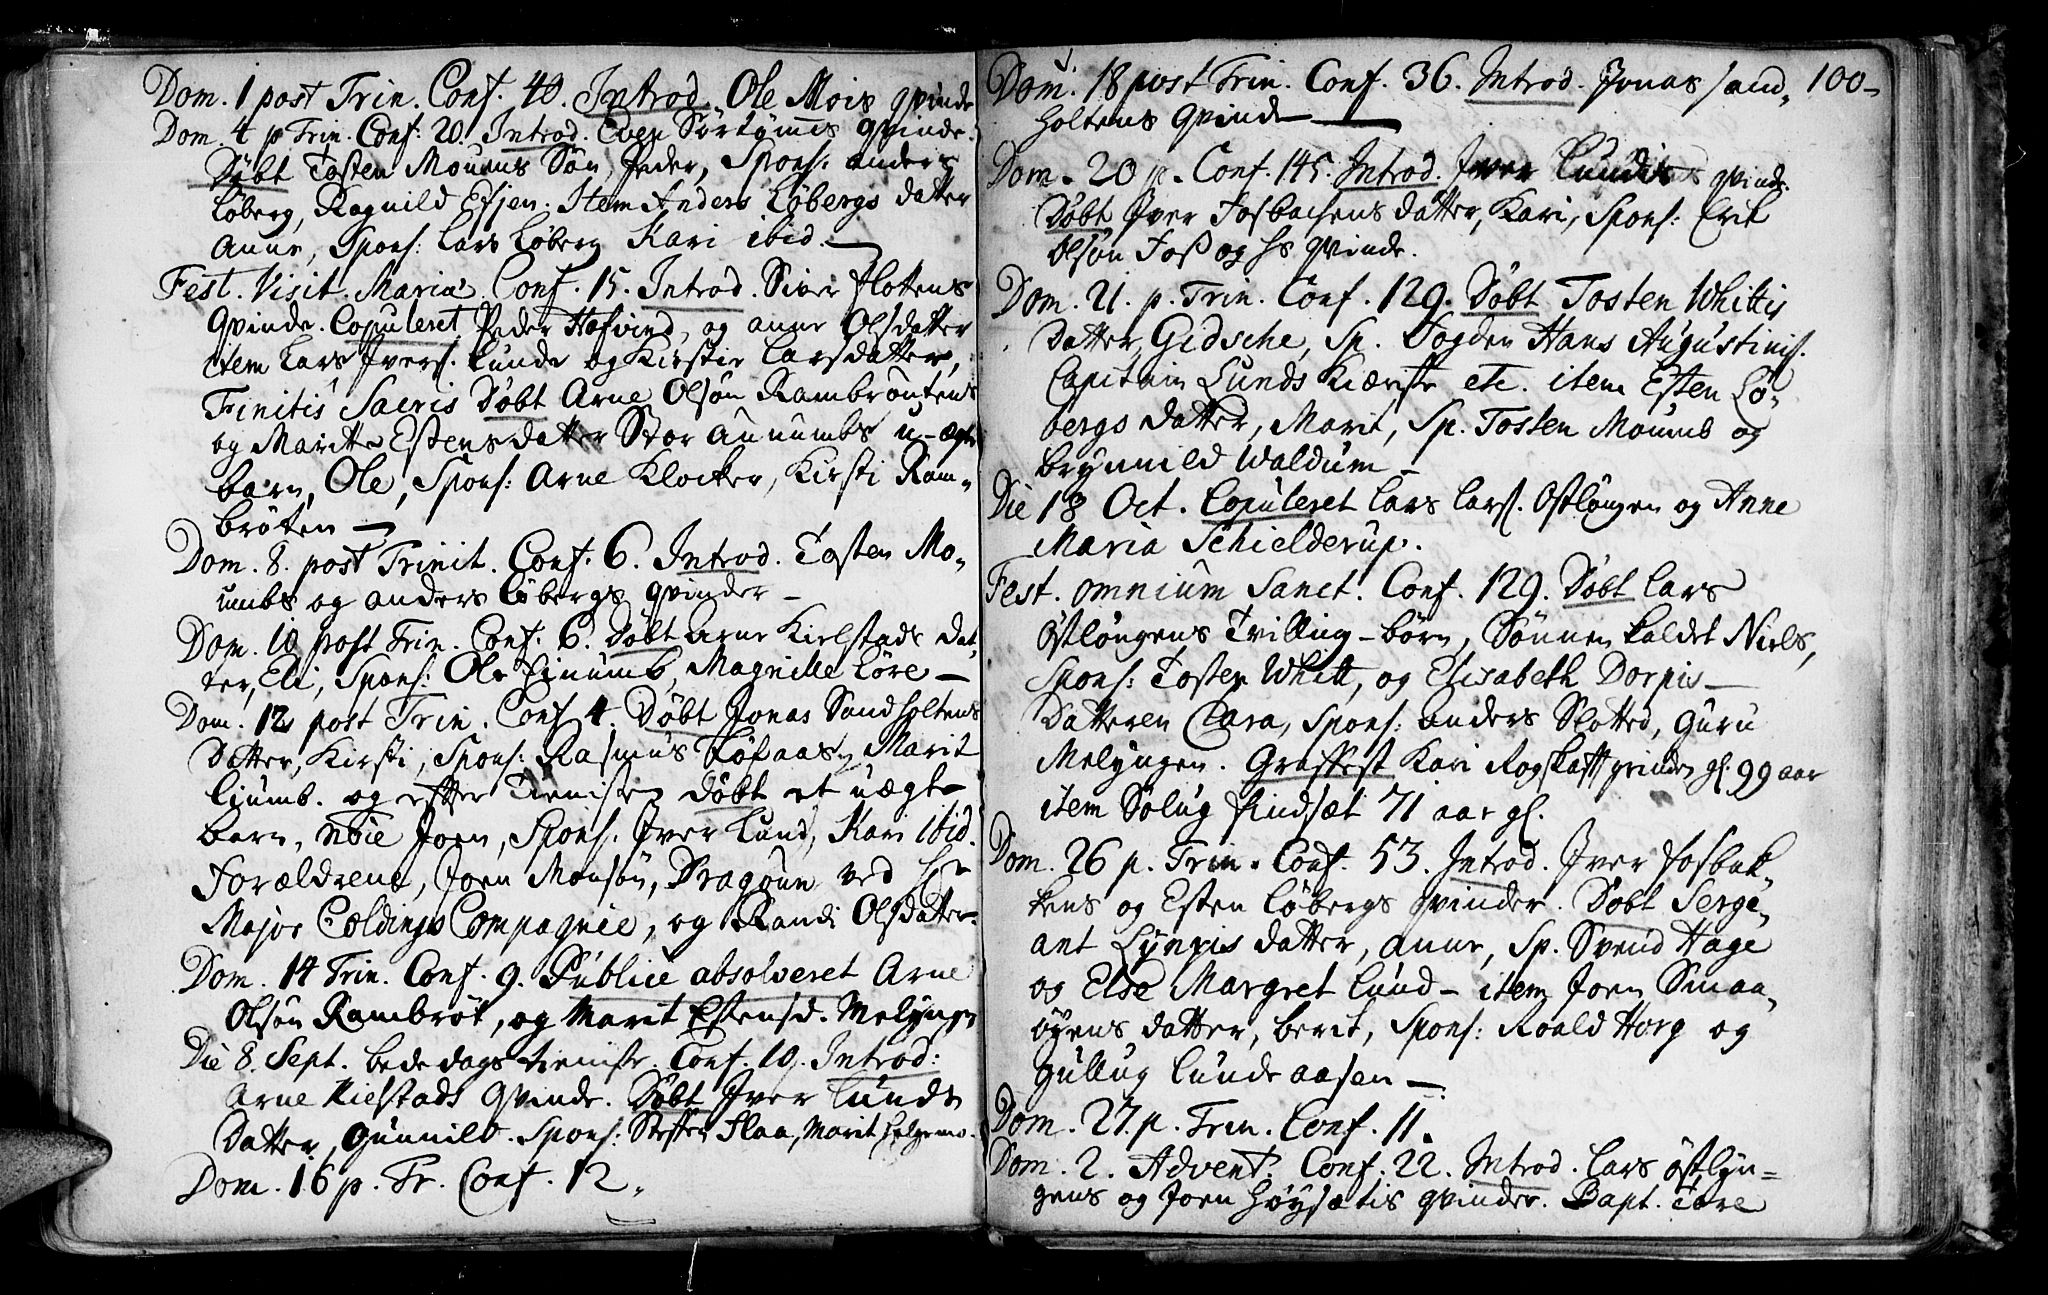 Dom. 1 post Trin. Conf. 40. Introd. Ole Mois qvinde
Dom. 4 p Trin. Conf: 20. Introd. Even Sørtømmes qvinde.
Døbt Tosten Mouens Søn, Peder, Spons: anders
Løberg, Ragnild Esjen. Item Anders Løbergs datter
Anne, Spons: Lars Løberg Kari ibid.
Fest. Visit. Mariæ Conf. 15. Introd. Siver flottens
Qvinde. Copuleret Peder Hofvind, og anne Olsdatter
item Lars Ivers. Lunde og Kirstie Larsdatter,
Finitis Sacris Døbt Arne Olsøn Rambroutens
og Maritte Estensdatter Stor Aunumbs u-ægte
barn, Ole, Spons: Arne Klocker, Kirsti Ram-
brøten
Dom. 8. post Trinit. Conf. 6. Introd. Tosten Mo-
umbs og anders Løbergs qvinder
Dom. 10 post Trin. Conf. 6. Døbt Arne Kielstads dat,
ter, Eli, Spons: Ole Finumb, Magnille Løre
Dom. 12 post Trin. Conf 4. Døbt Jonas Sandholtens
Datter, Kirsti, Spons: Rasmus Løfaas, Marit
Liumb. og efter Tienisten døbt et uægte
barn, Joen, Spons: Iver Lund, Kari ibid.
Forældrene, Joen Monsøn, Dragoun ved Hr
Major Coldings Compagnie, og Randi Olsdatter.
Dom. 14 Trin. Conf. 9. Publice absolveret Arne
Olsøn Rambrøt, og Marit Estensd. Melyngen
Die 8. Sept. bededags tieniste Conf. 10. Introd:
Arne Kielstads Qvinde. Døbt Iver Lunde
Datter, Gunnild. Spons: Steffen Flaa, Marit Helgemo.
Dom. 16 p. Tr. Conf. 12.
Dom. 18 post Trin. Conf. 36. Introd. Jonas sand, 100
holtens qvinde
Dom. 20 p. Conf. 145. Introd. Iver Lundes qvinde.
Døbt Iver Fosbachens datter, Kari, Spons: Erik
Olsøn Foss og hs qvinde.
Dom. 21. p. Trin. Conf. 129. Døbt Tosten Whittis
Datter, Gidsche, Sp. Fogden Hans Augustinis.
Capitain Lunds Kiæreste etc. item Esten Lø-
bergs datter, Marit, Sp. Tosten Moumb og
brynnild Waldum
Die 18 Oct. Copuleret Lars Lars. Ostløngen og Anne
Maria Schielderup.
Fest. omnium Sanct. Conf. 129. Døbt Lars
Østlöngens Tvilling-börn, Sønnen kaldet Niels,
Spons: Tosten Whitt, og Elisabeth Dorpis
Datteren Clara, Spons: anders Slotted, Guru
Melyngen. Graffest Kari Rogskafft qvinden gl. 99 aar
item Solug Findsæt 71 aar gl.
Dom. 26 p. Trin. Conf. 53. Introd. Iver fosbak-
kens og Esten Løbergs qvinder. Døbt Serge-
ant Lynris datter, anne, Sp. Svend Hage
og Else Margret Lund - item Joen Smaa-
øyens datter, berit, Spons: Roald Horg og
gullug Lundeaasen
Dom. 27. p. Trin. Conf. 11.
Dom. 2. Advent. Conf. 22. Introd. Lars østlyn=
gens og Joen Høysætis qvinder. Bapt. Tore